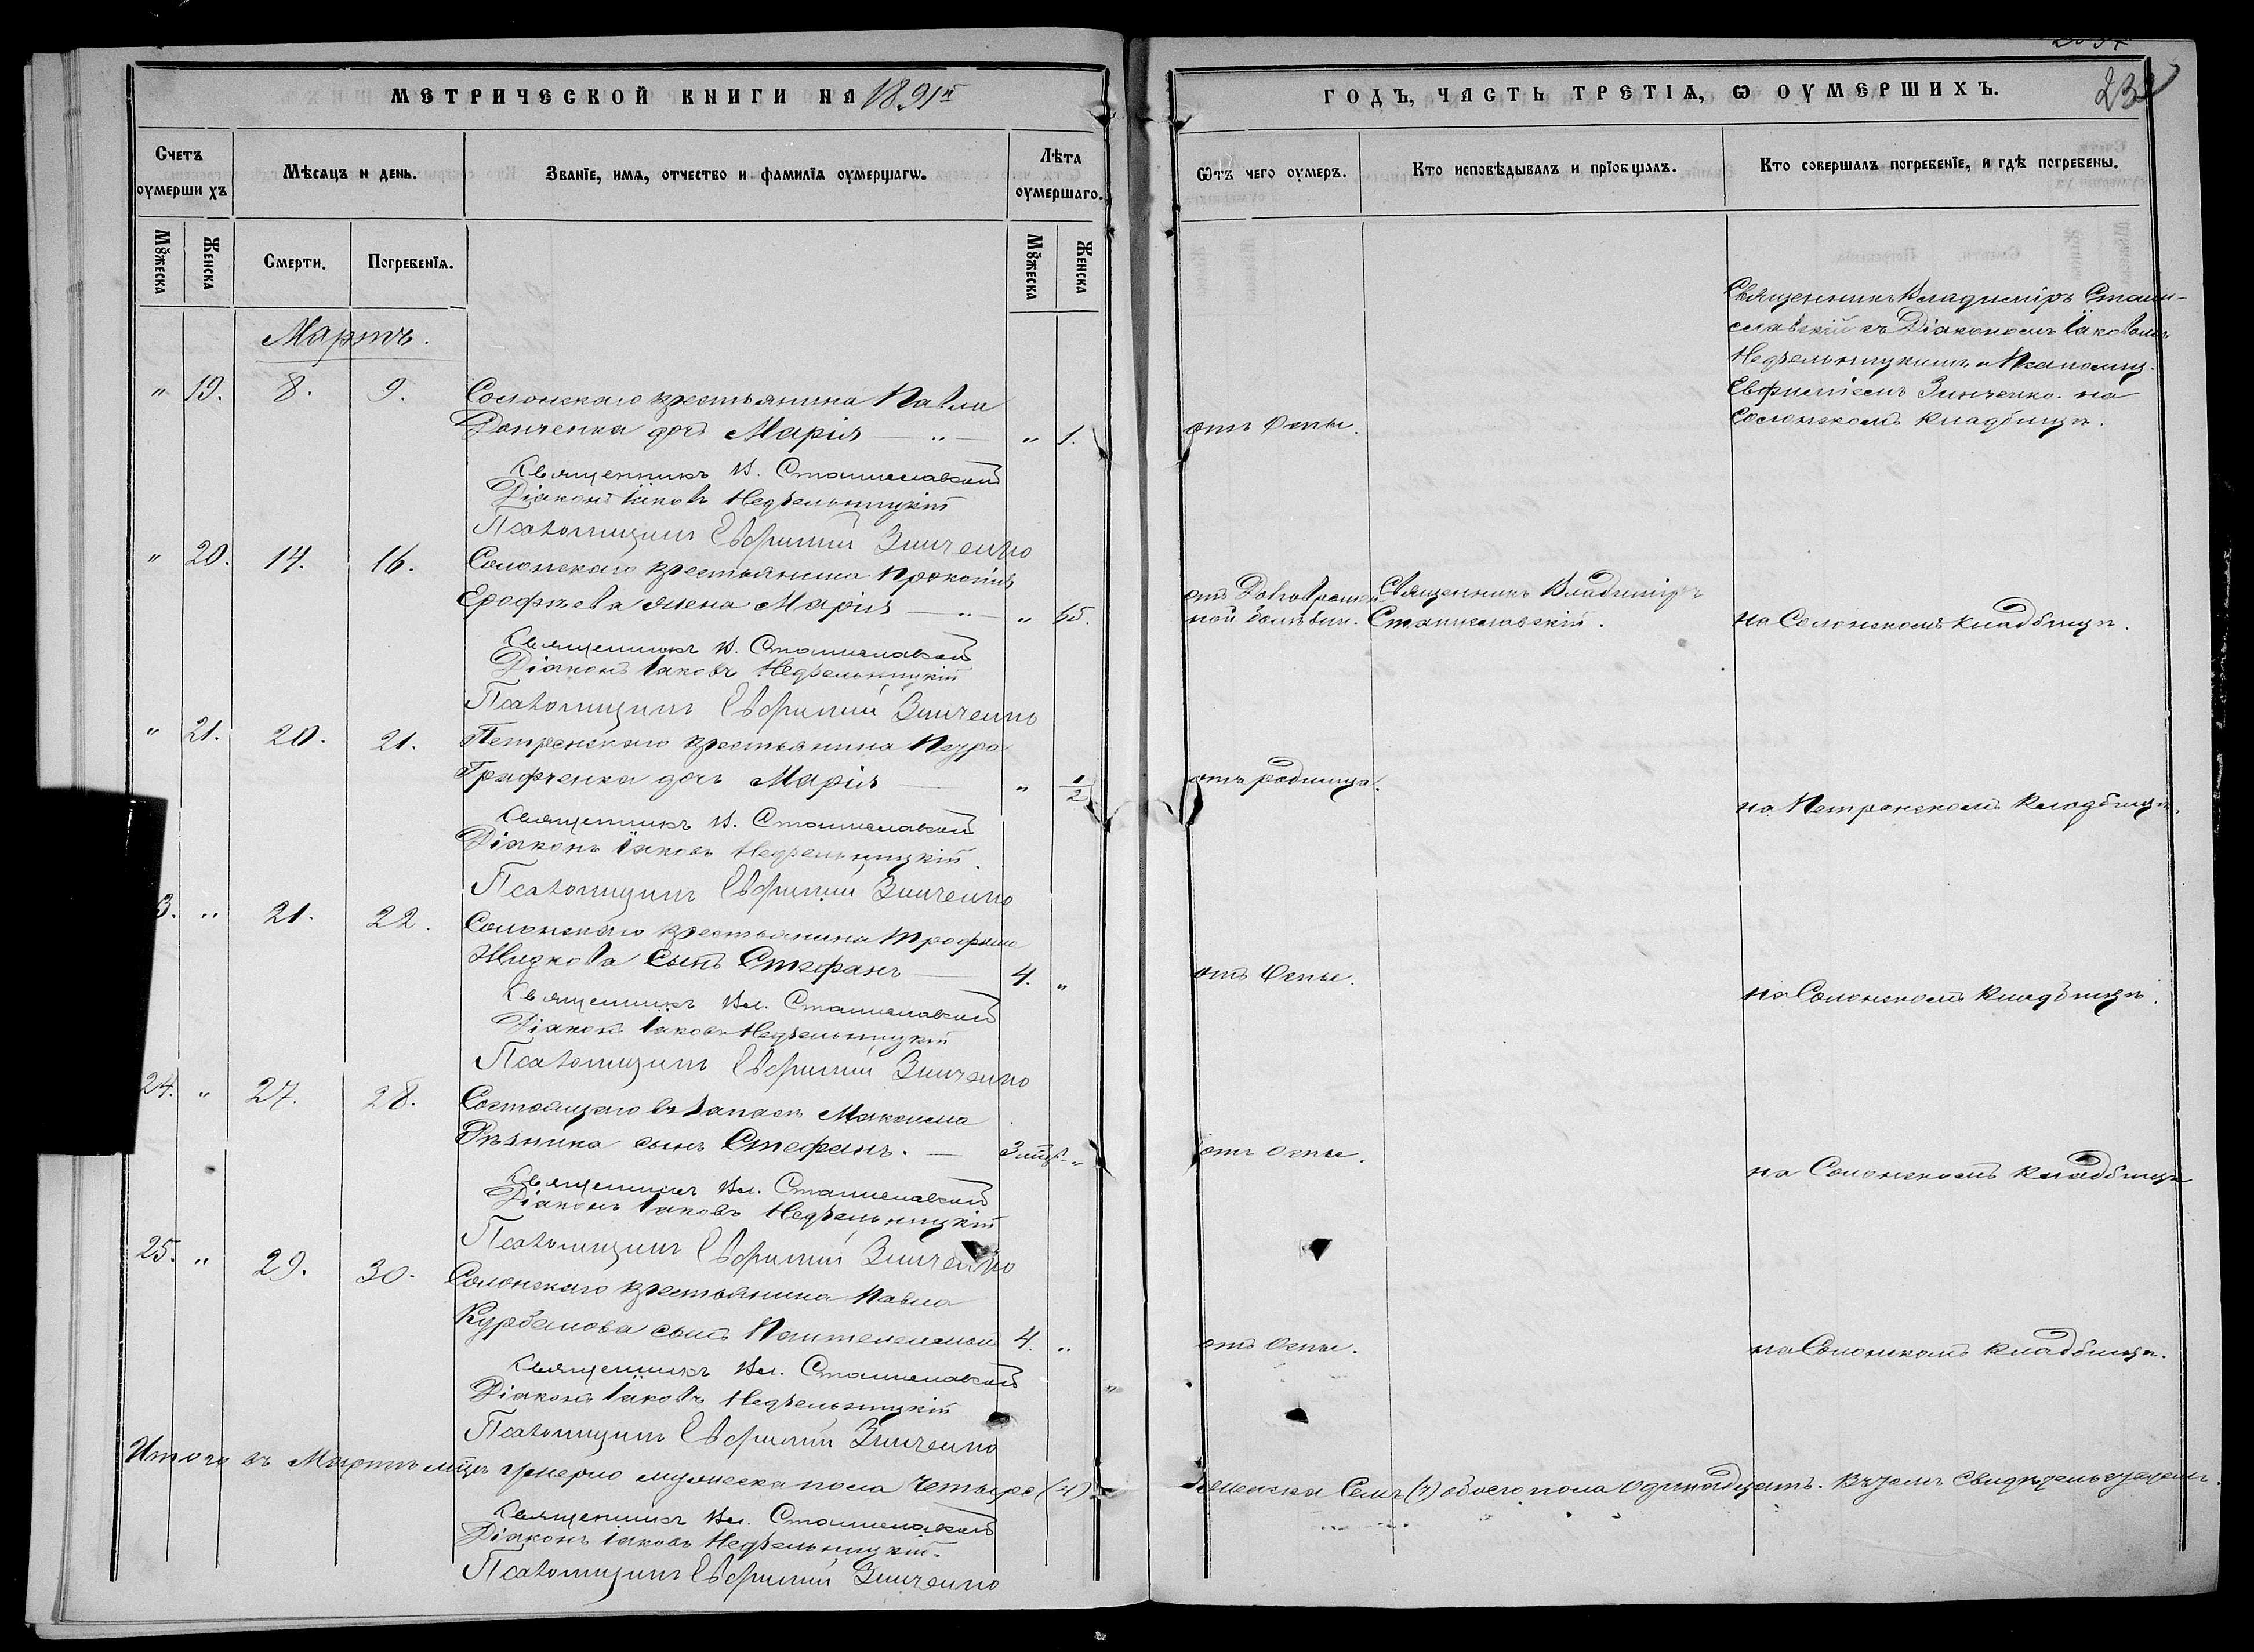 МЕТРИЧЕСКОЙ КНИГИ НА 1891й
ГОДЪ, ЧАСТЬ ТРЕТІѦ, Ѡ ОУМЕРШИХЪ.
232
Счетъ оумершихъ
Мѣсѧцъ и день.
Званїе, имѧ, отчество и фамилїѧ оумершагѡ.
Лѣта оумершаго.
Ѿтъ чего оумеръ.
Кто исповѣдывалъ и прїобщалъ.
Кто совершалъ погребенїе, и гдѣ погребены.
Мꙋжеска
Женска
Смерти.
Погребенїѧ.
Мꙋжеска
Женска
Мартъ.
Священникъ Владиміръ Стани-
славскій съ Діакономъ Іаковомъ
Недѣльницкимъ и Псаломщ.
Евфиміемъ Зинченко на
Солонскомъ кладбищѣ.
" 19. 8. 9. Солонскаго крестьянина Павла
Донченка дочь Марія — " — " 1. отъ Оспы.
Священникъ В. Станиславскій
Діаконъ Іаковъ Недѣльницкій
Псаломщикъ Евфимій Зинченко
" 20. 14. 16. Солонскаго крестьянина Прокопія
Ерофѣева жена Марія — " — " 65. отъ Долговремен- Священникъ Владиміръ
ной болѣзни. Станиславскій. на Солонскомъ кладбищѣ.
Священникъ В. Станиславскій
Діаконъ Іаковъ Недѣльницкій
Псаломщикъ Евфимій Зинченко
" 21. 20. 21. Петренскаго крестьянина
дочь Марія — " 1/2 отъ родимца.
на Петренскомъ кладбищѣ.
Священникъ В. Станиславскій
Діаконъ Іаковъ Недѣльницкій.
Псаломщикъ Евфимій Зинченко
3. " 21. 22. Солонскаго крестьянина Трофима
Жидкова сынъ Стефанъ — 4. " отъ Оспы.
на Солонскомъ кладбищѣ.
Священникъ Вл. Станиславскій
Діаконъ Іаковъ Недѣльницкій
Псаломщикъ Евфимій Зинченко
24. " 27. 28. Состоящаго въ запасѣ Максима
Рѣзника сынъ Стефанъ. — 3 мцв. " отъ оспы.
на Солонскомъ кладбищѣ
Священникъ Вл. Станиславскій
Діаконъ Іаковъ Недѣльницкій
Псаломщикъ Евфимій Зинченко
25. " 29. 30. Солонскаго крестьянина Павла
Курбанова сынъ Пантелеимонъ 4. " отъ Оспы. на Солонскомъ кладбищѣ.
Священникъ Вл. Станиславскій
Діаконъ Іаковъ Недѣльницкій
Псаломщикъ Евфимій Зинченко
Итого въ Мартѣ мцѣ умерло мужеска пола Четыре (4) женска Семь (7) обоего пола одинадцать. Въ чемъ свидѣтельствуемъ.
Священникъ Вл. Станиславскій
Діаконъ Іаковъ Недѣльницкій.
Псаломщикъ Евфимій Зинченко